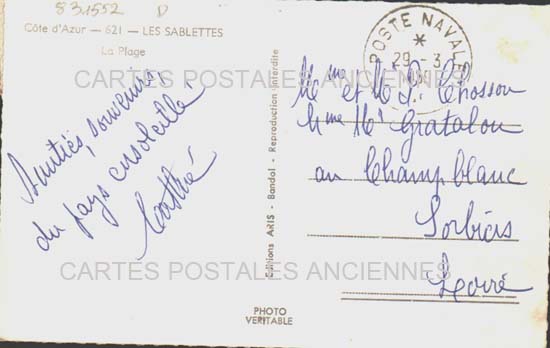 831552 D
Côte d'Azur — 621 — LES SABLETTES
La Plage
CARTES POSTALES ANCIENNES
Amitiés, souvenirs,
du pays ensoleillé
POSTE NAVALE
29 - 3
Mme et Mr L. Chosson
Mme Mt Gratalou
au Champ blanc
Sorbiers
Loire
Editions ARIS - Bandol - Reproduction interdite
CARTES POSTALES ANCIENNES
PHOTO
VERITABLE